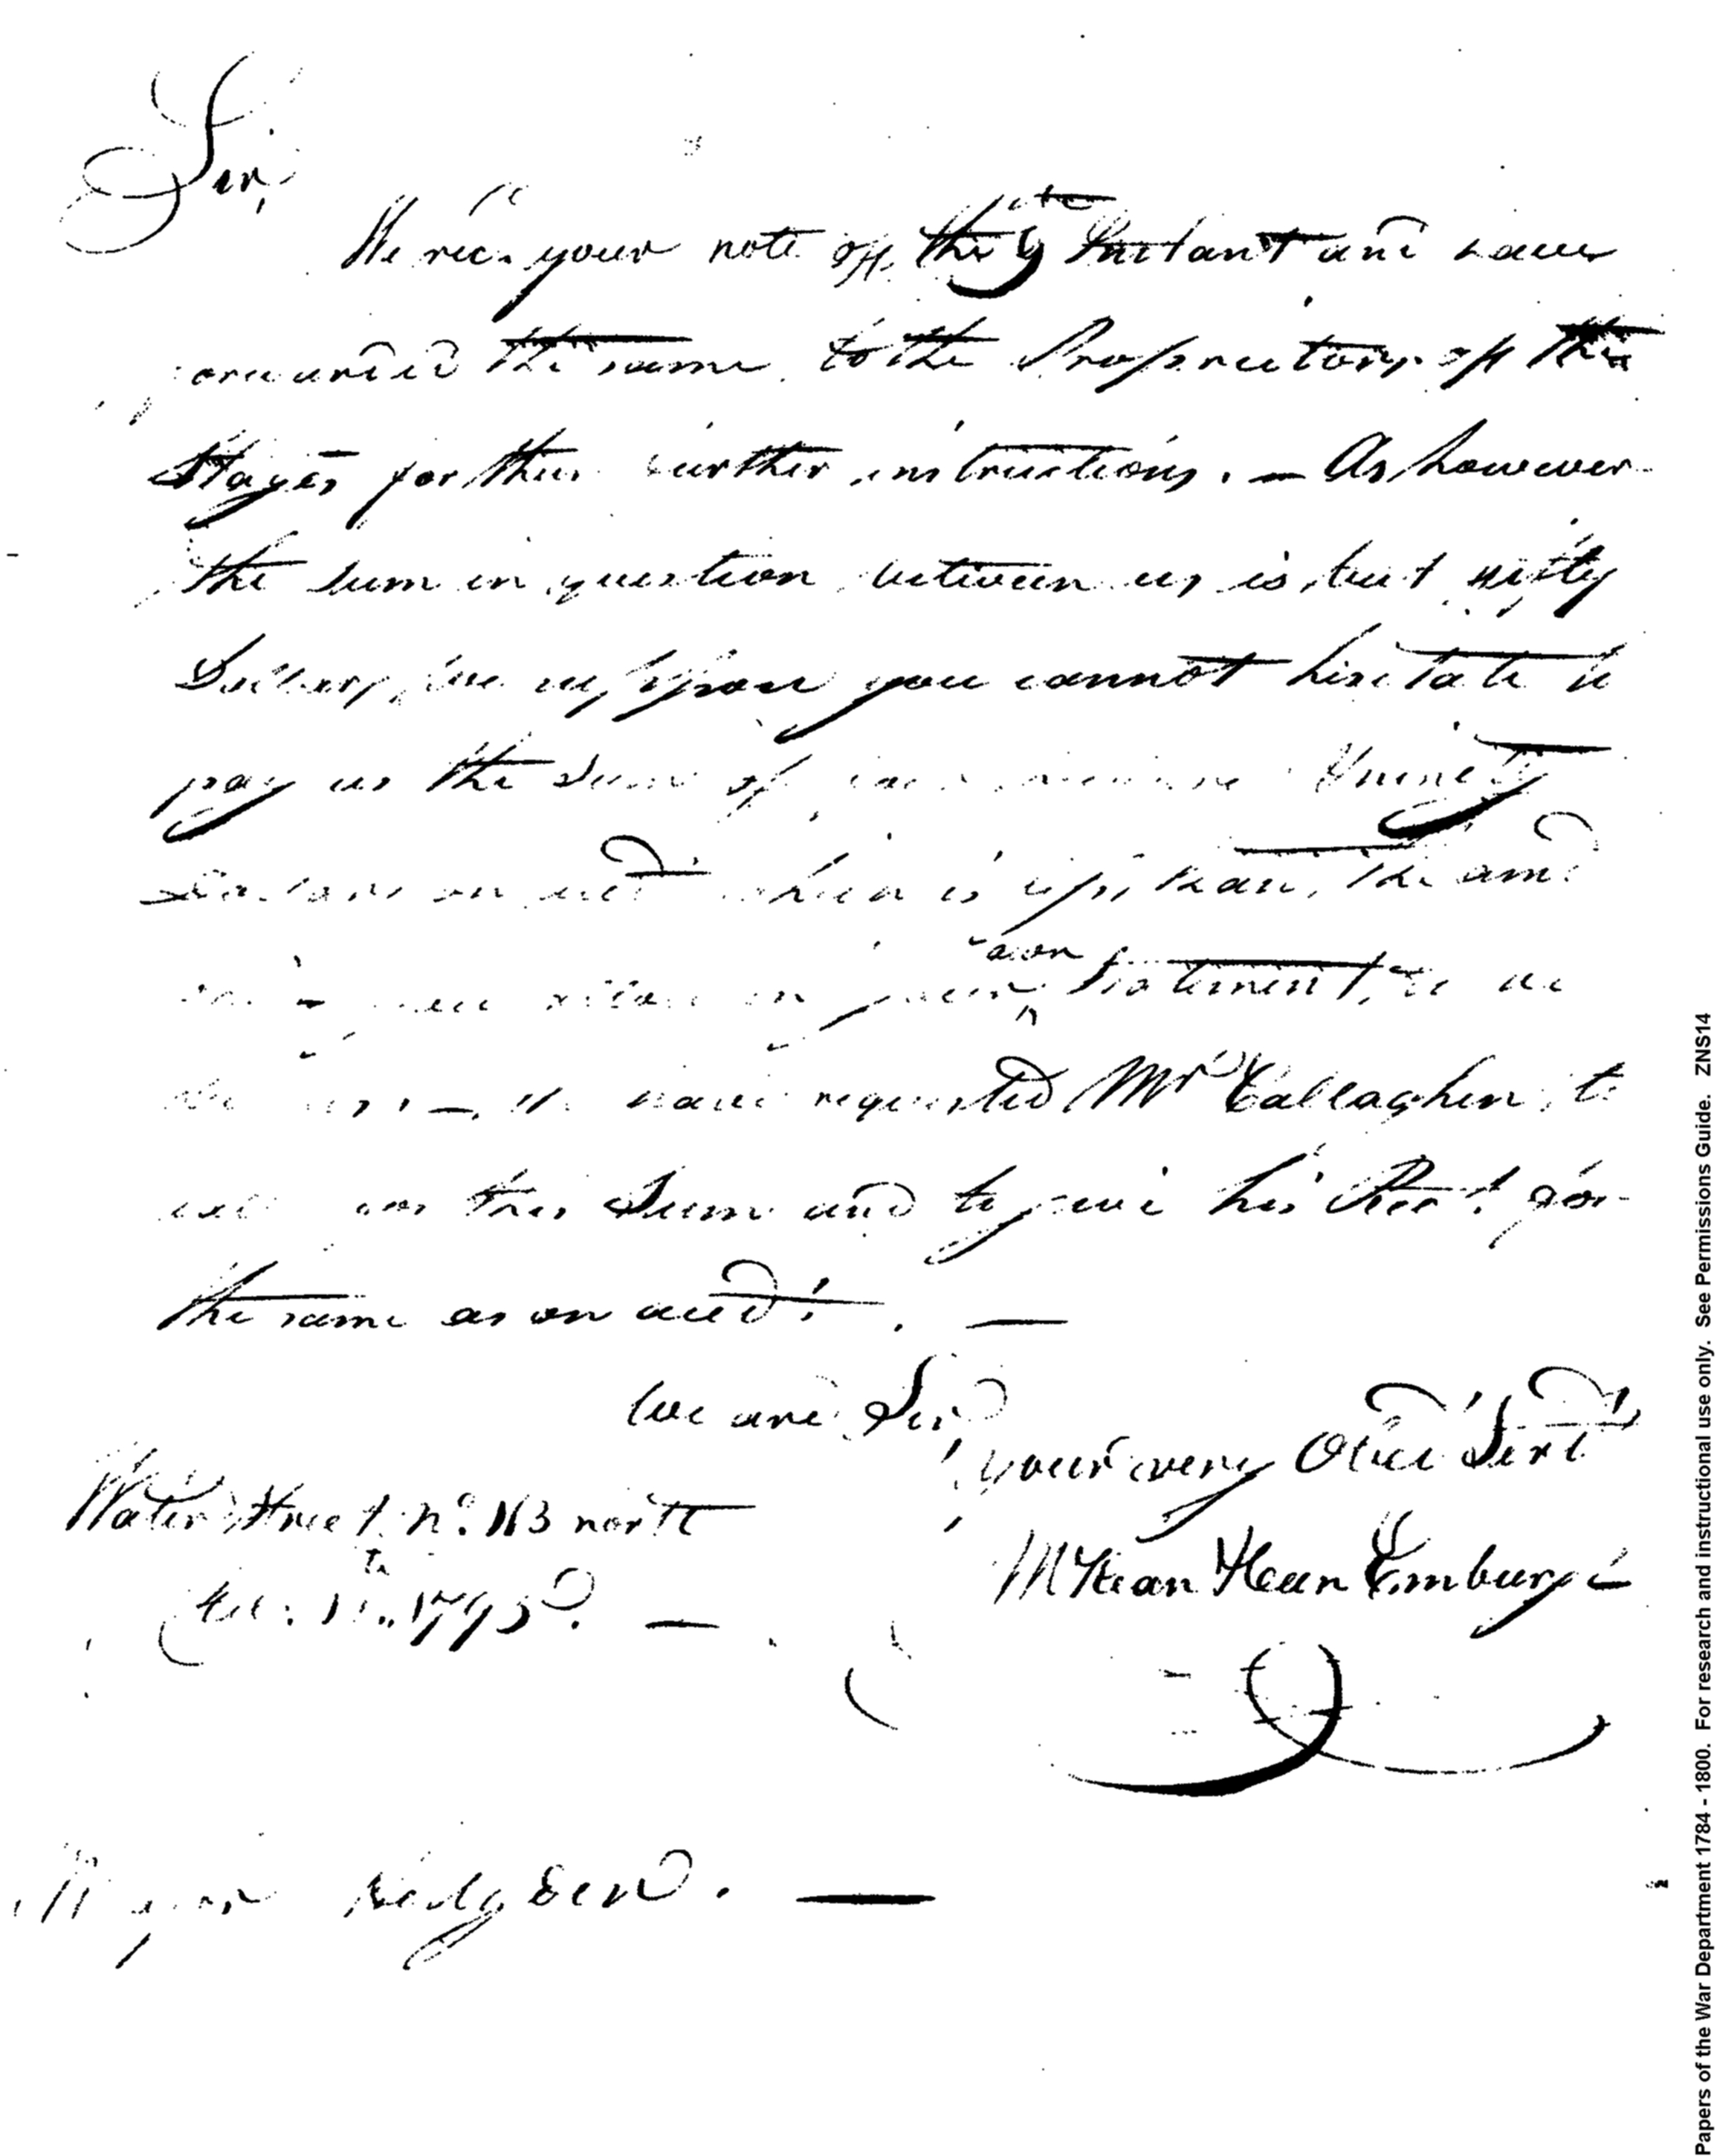 Sir,
We rec.d your note of the 9th Instant and have
forwarded the same to the Proprietors of the
Stages for their further instructions. — As however
the Sum in question between us is but fifty
Dollars, we suppose you cannot hesitate to
pay us the Sum of Ninety
Dollars on acct which is less than the amt
you allow in your own Statement to be
have requested Mr Callaghen to
this Sum and to give his Rect for
the same as on acct. —
We are Sir
your very Obed Servt
Water Street No. 113 north
1795. —
McKean Embury
Major Hodgdon. —
Papers of the War Department 1784 - 1800. For research and instructional use only. See Permissions Guide. ZNS14